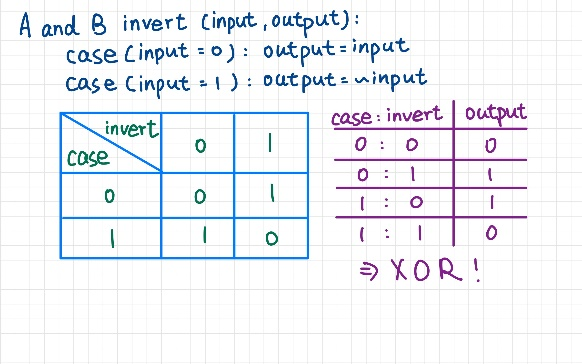 A and B invert (input, output):
case (input = 0): output = input
case (input = 1): output = ~input
invert
case
0 1
0 0 1
1 1 0
case : invert output
0 : 0 0
0 : 1 1
1 : 0 1
1 : 1 0
⇒ XOR!